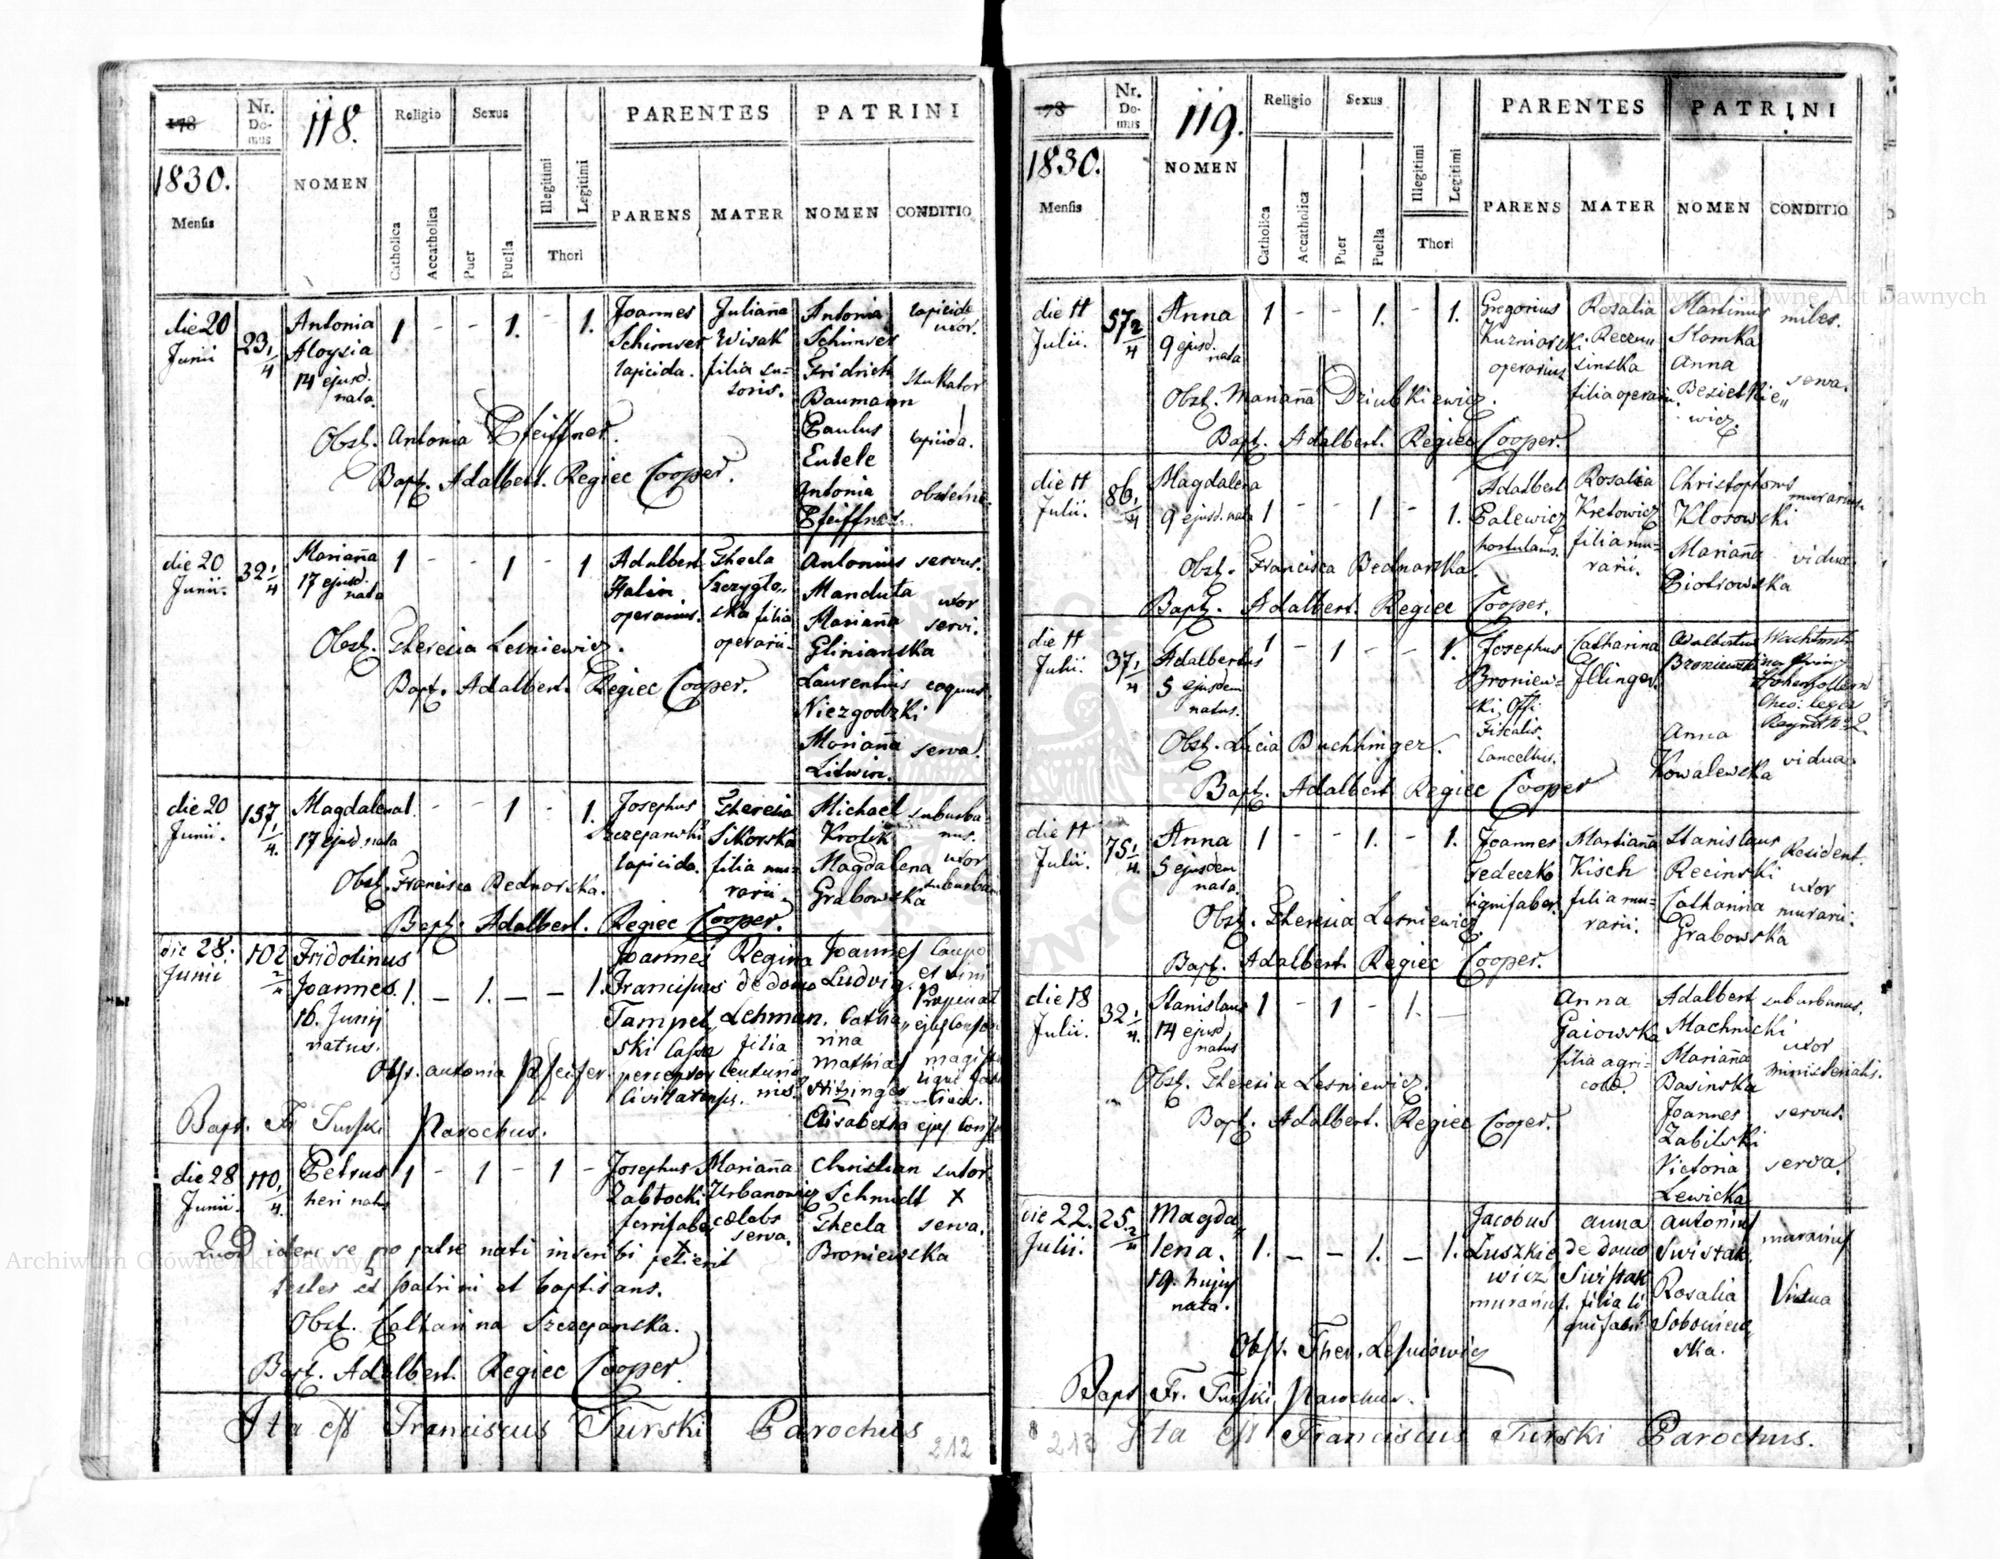 178
Nr. Domus
118.
Religio
Sexus
PARENTES
PATRINI
1830.
Mensis
NOMEN
Catholica
Accatholica
Puer
Puella
Illegitimi
Legitimi
Thori
PARENS
MATER
NOMEN
CONDITIO
die 20 Junii
23 1/4
Antonia Aloysia 14 ejusd. nata
1 - - 1. - 1.
Joannes Schimser lapicida.
Julianna Wisak filia sutoris.
Antonia Schimser
lapicida uxor.
Fridrich Baumann
Stukator
Paulus Eutele
lapicida.
Antonia Pfeiffner.
obstetrix
Obst. Antonia Pfeiffner.
Bapt. Adalbert. Regiec Cooper.
die 20 Junii.
32 1/4
Marianna 17 ejusd. nata
1 - - 1 - 1
Adalbert Halin operarius.
Thecla Szczyglowska filia operarii
Antonius Manduta
servus.
Marianna Glinianska
uxor servi.
Laurentius Niezgodzki
coquus
Marianna Litwin.
serva.
Obst. Theresia Lesniewicz.
Bapt. Adalbert. Regiec Cooper.
die 20 Junii.
137 1/4.
Magdalena 17 ejusd. nata
1. - - 1 - 1.
Josephus Szczepanski lapicida.
Theresia Sikorska filia murarii
Michael Krolik
suburbanus.
Magdalena Grabowska
uxor suburbani
Obst. Francisca Bednarska.
Bapt. Adalbert. Regiec Cooper.
die 28. Junii
102
Fridolinus Joannes. 16. Junij natus.
1. - 1. - - 1.
Joannes Franciscus Tampelski
perceptor Civitatensis.
Regina de domo Lehman, filia
Joannes Ludwig.
Caupo et vini
Catharina
Mathias Hitzinger
Elisabetha
Obst. antonia Pfeifer.
Bapt. Fr Turski Parochus.
die 28 Junii.
110 1/4.
Petrus heri natus
1 - 1 - 1 -
Josephus Zablocki ferrifaber
Marianna Urbanowicz coelebs serva.
Christian Schmidt
sutor X
Thecla Broniewska
serva.
Quod idem se pro patre nati inscribi petierit
testes et patrini et baptisans.
Obst. Catharina Szczepanska.
Bapt. Adalbert. Regiec Cooper.
Ita est Franciscus Turski Parochus
212
78
Nr. Domus
119.
Religio
Sexus
PARENTES
PATRINI
1830.
Mensis
NOMEN
Catholica
Accatholica
Puer
Puella
Illegitimi
Legitimi
Thori
PARENS
MATER
NOMEN
CONDITIO
die 11 Julii.
57 2/4
Anna 9 ejusd. nata
1 - - 1. - 1.
Gregorius Kuzniarski operarius
Rosalia Recensinska filia operarii
Martinus Slomka
miles.
Anna Bezielkiewicz.
serva.
Obst. Marianna Dziubkiewicz.
Bapt. Adalbert. Regiec Cooper.
die 11 Julii.
86 1/4
Magdalena 9 ejusd. nata
1 - - 1 - 1.
Adalbert Palewicz hortulanus.
Rosalia Kretowicz filia murarii.
Christophorus Klosowski
murarius.
Marianna Piotrowska
vidua.
Obst. Francisca Bednarska.
Bapt. Adalbert. Regiec Cooper.
die 11 Julii.
37 1/4
Adalbertus 5 ejusdem natus.
1 - 1 - - 1.
Josephus Broniewski. Offi Fiscalis. Cancellus.
Catharina Illinger.
Adalbertus Broniewski
Hohenzollern
Anna Kowalewska
vidua.
Obst. Lucia Buchhinger.
Bapt. Adalbert Regiec Cooper
die 11 Julii.
75 1/4.
Anna 5 ejusdem nata.
1 - - 1. - 1.
Joannes Fedeczko lignifaber.
Marianna Kisch filia murarii.
Stanislaus Recinski
Resident.
Catharina Grabowska
uxor murarii.
Obst. Theresia Lesniewicz.
Bapt. Adalbert. Regiec Cooper.
die 18 Julii.
32 1/4.
Stanislaus 14 ejusd. natus
1 - 1 - 1. -
Anna Gaiowska filia agricolae.
Adalbert Machnicki
suburbanus.
Marianna Basinska
uxor ministerialis.
Joannes Zabilski
servus.
Victoria Lewicka
serva.
Obst. Theresia Lesniewicz.
Bapt. Adalbert. Regiec Cooper.
die 22. Julii.
25
Magdalena. 19. hujus nata.
1. - - 1. - 1.
Jacobus Luszkiewicz murarius.
anna de domo Swistak filia lignifabri
antonius Swistak.
murarius
Rosalia
Vidua
Obst. Ther. Lesniowicz
Bapt Fr. Turski, Parochus.
213
Ita est Franciscus Turski Parochus.
Archiwum Główne Akt Dawnych
Archiwum Główne Akt Dawnych